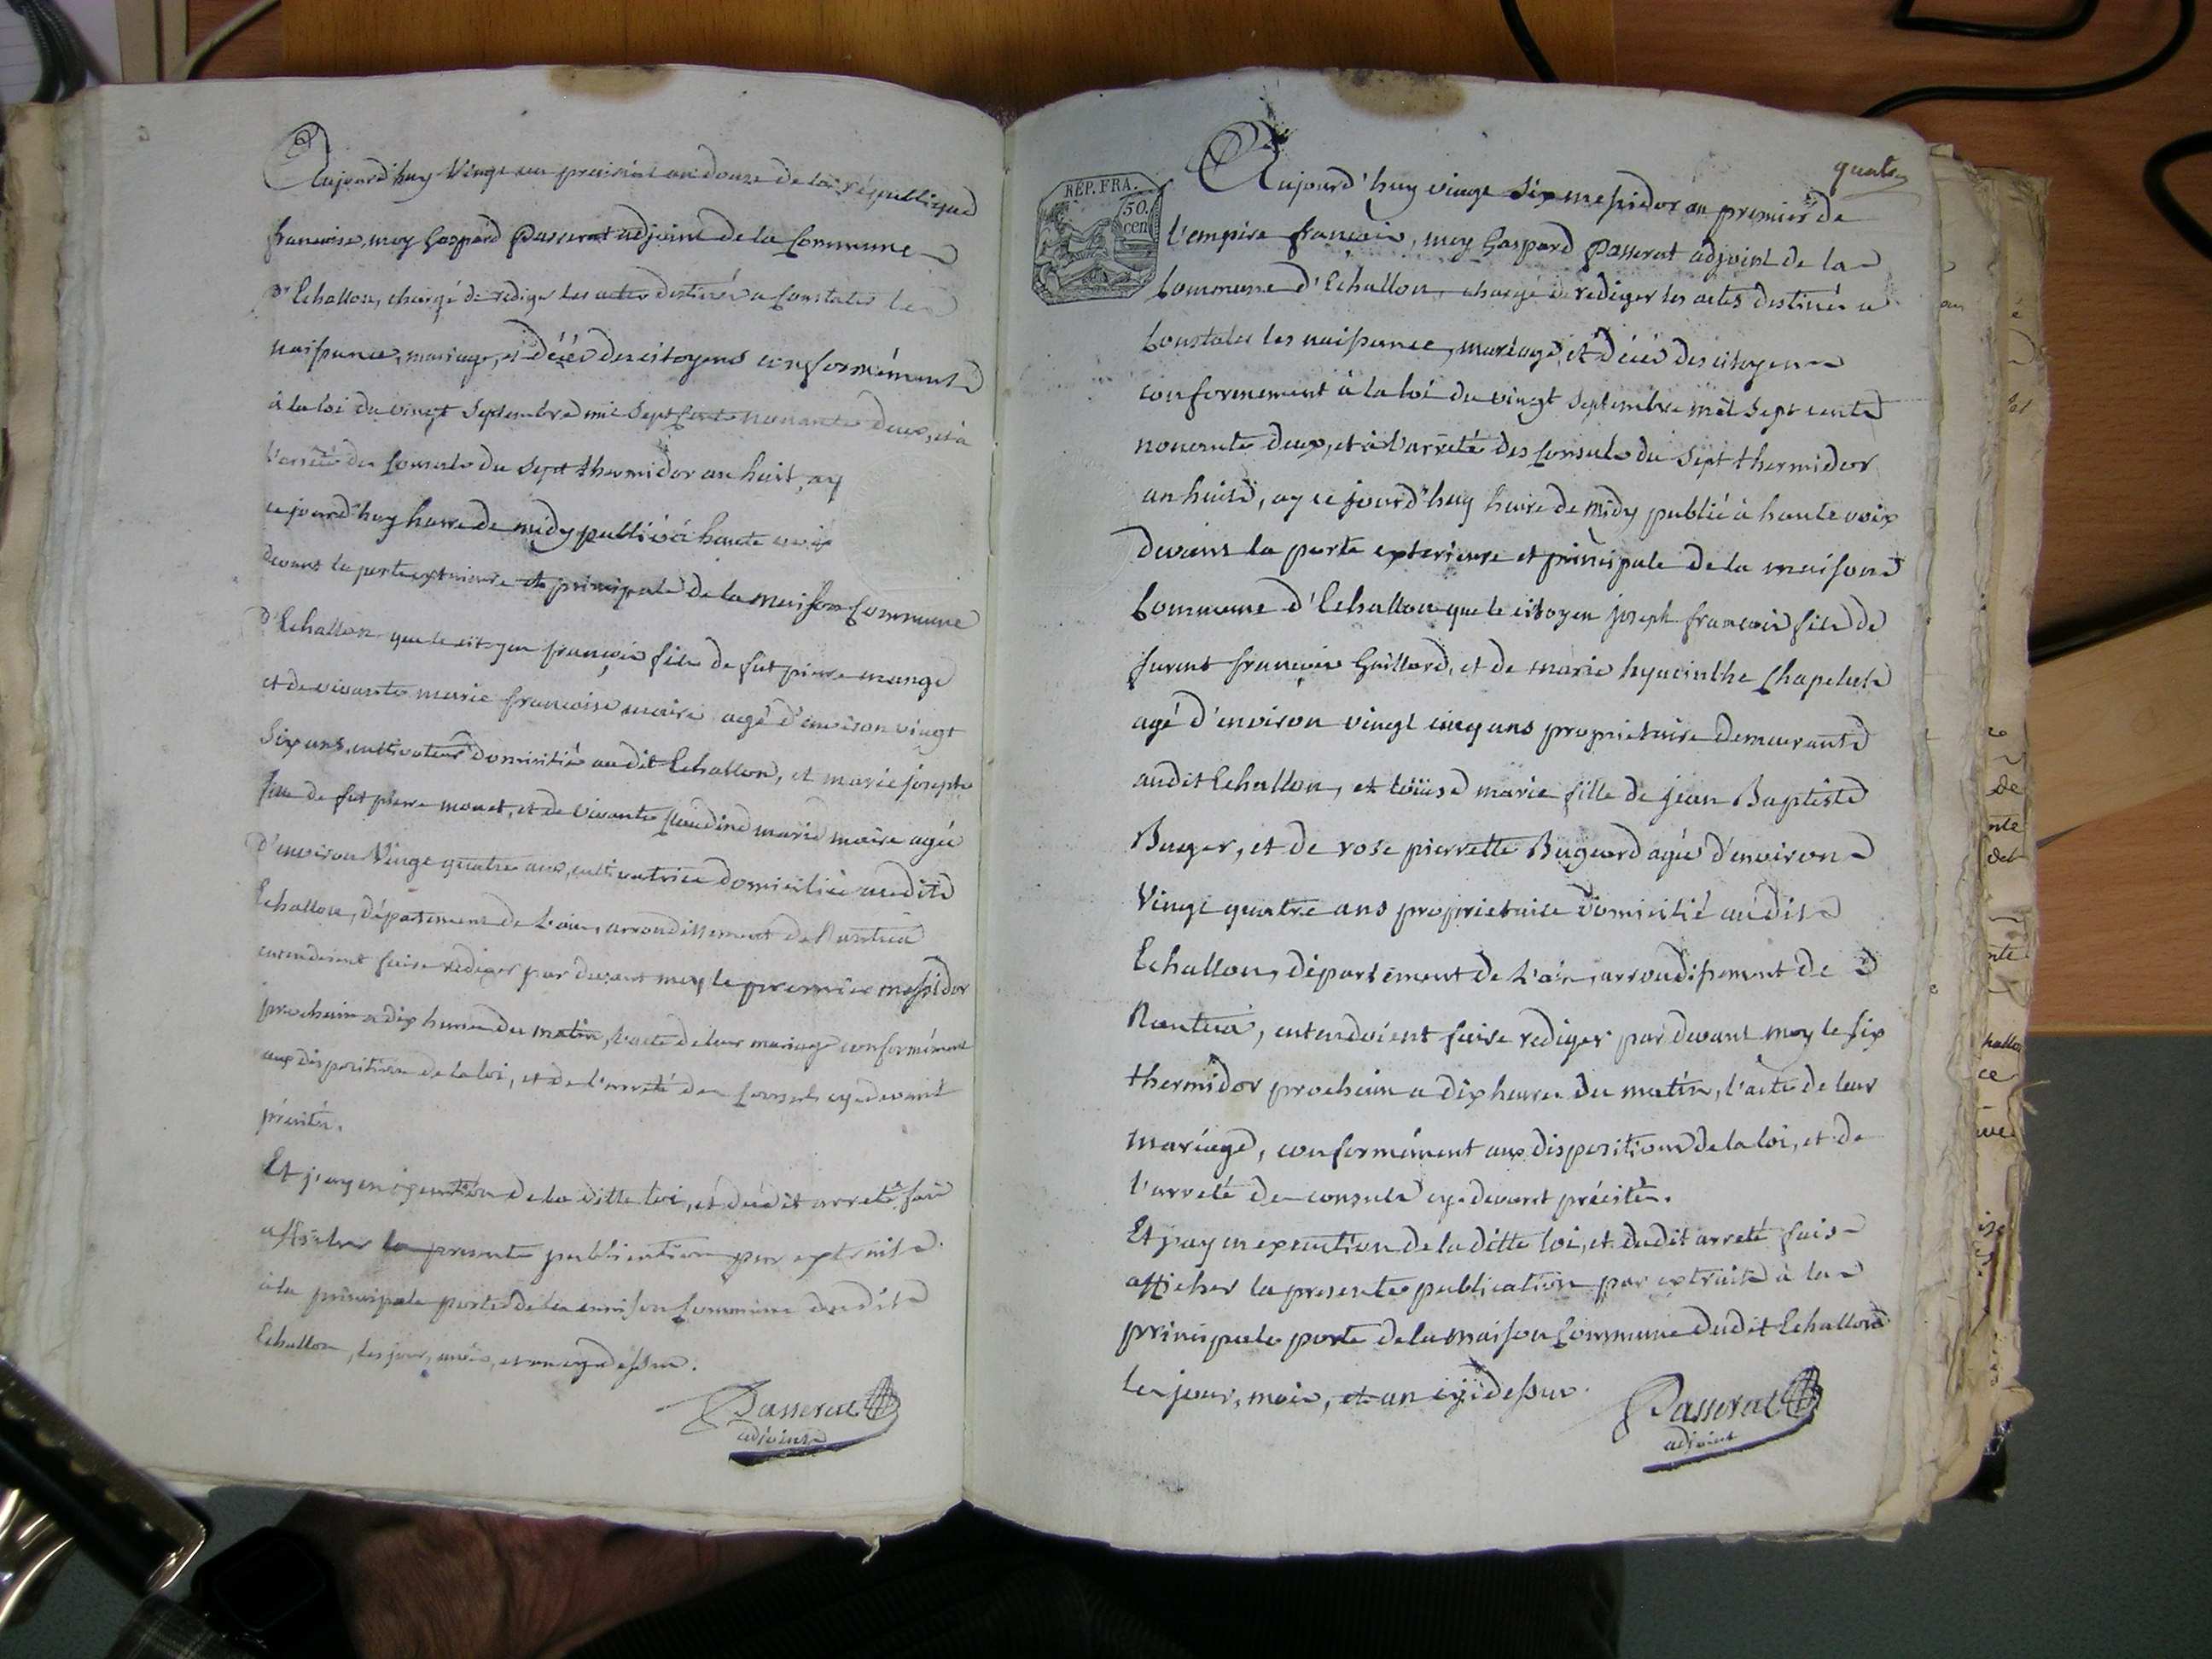 Aujourd'huy vingt un prairial an douze de la république
francoise, moy Gaspard Passerat adjoint de la Commune
d'Echallon, chargé de rediger les actes destinés a Constater les
naissance, mariage, et décés des citoyens conformément
à la loi du vingt Septembre mil Sept Cents nonante deux, et à
l'arrêté des Consuls du Sept thermidor an huit, ay
ce jourd'huy heure de midy publié à haute voix
devant la porte exterieure et principale de la maison Commune
d'Echallon que le citoyen françois fils de fut pierre
et de vivante marie francoise maire agé d'environ vingt
Six ans, cultivateur domicilié audit Echallon, et marie josepte
fille de fut pierre monet, et de vivante Claudine marie maire agée
d'environ Vingt quatre ans, cultivatrice domiciliée audit
Echallon, département de L'ain, arrondissement de Nantua
entendoient faire rediger par devant moy le premier messidor
prochain a dix heures du matin, l'acte de leur mariage conformément
aux disposition de la loi, et de l'arreté des Consuls cy devant
précités.
Et j'ay en éxecution de la ditte loi, et dudit arreté fait
afficher la presente publication par extrait
à la principale porte de la maison Commune dudit
Echallon, les jour, mois, et an cy dessus.
Passerat
adjoint
quatre
RÉP. FRA.
50.
cen
Aujourd'huy vingt Six messidor an premier de
l'empire francois, moy Gaspard Passerat adjoint de la
Commune d'Echallon, chargé de rediger les actes destinés a
Constater les naissance, mariage, et décés des citoyens
conformement à la loi du vingt Septembre mil Sept cents
nonente deux, et à l'arreté des Consuls du Sept thermidor
an huit, ay ce jourd'huy heure de midy publié à haute voix
devant la porte exterieure et principale de la maison
Commune d'Echallon que le citoyen joseph francois fils de
furent francois Guillard, et de marie hyacinthe Chapelut
agé d'environ vingt cinq ans proprietaire demeurant
audit Echallon, et louise marie fille de jean Baptiste
Burger, et de rose pierrette Bugeard agée d'environ
Vingt quatre ans proprietaire domicilié audit
Echallon, département de L'ain, arrondissement de
Nantua, entendoient faire rediger par devant moy le six
thermidor prochain a dix heures du matin, l'acte de leur
mariage, conformément aux dispositions de la loi, et de
l'arreté des consuls cy devant précité.
Et j'ay en execution de la ditte loi, et dudit arreté fais
afficher la presente publication par extrait à la
principale porte de la maison Commune dudit Echallon
les jour, mois, et an cy dessus.
Passerat
adjoint